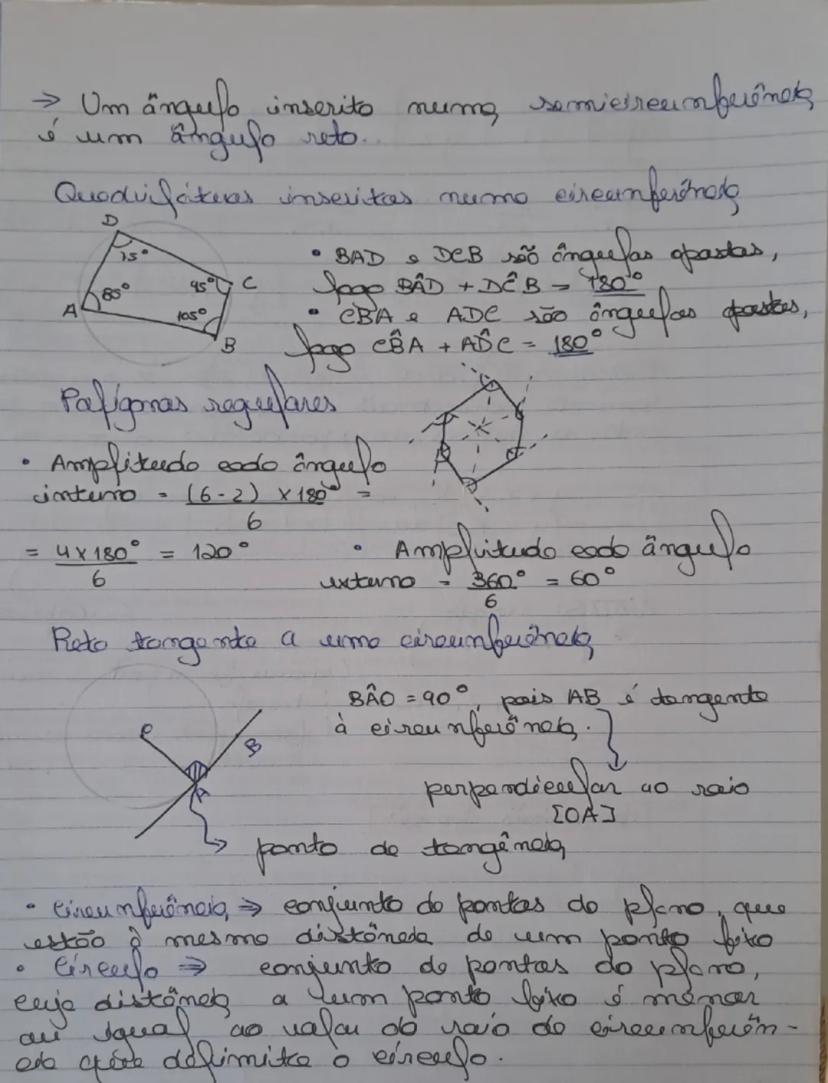 → Um ângulo inscrito numa semicircunferência
é um ângulo reto.
Quadriláteros inscritos numa circunferência
D
75°
95° C
A 85°
105°
B
• BAD e DCB são ângulos opostos,
logo BÂD + DĈB = 180°
• CBA e ADC são ângulos opostos,
logo CB̂A + AD̂C = 180°
Polígonos regulares
• Amplitude cada ângulo
interno = (6-2) x 180° =
6
= 4x180° = 120°
6
• Amplitude cada ângulo
externo = 360° = 60°
6
Reta tangente a uma circunferência
BÂO = 90°, pois AB é tangente
à circunferência.
B
A
perpendicular ao raio
[OA]
ponto de tangência
• Circunferência ⇒ conjunto de pontos do plano, que
estão à mesma distância de um ponto fixo
• Círculo ⇒ conjunto de pontos do plano,
cuja distância a um ponto fixo é menor
ou igual ao valor do raio da circunferên-
cia que delimita o círculo.